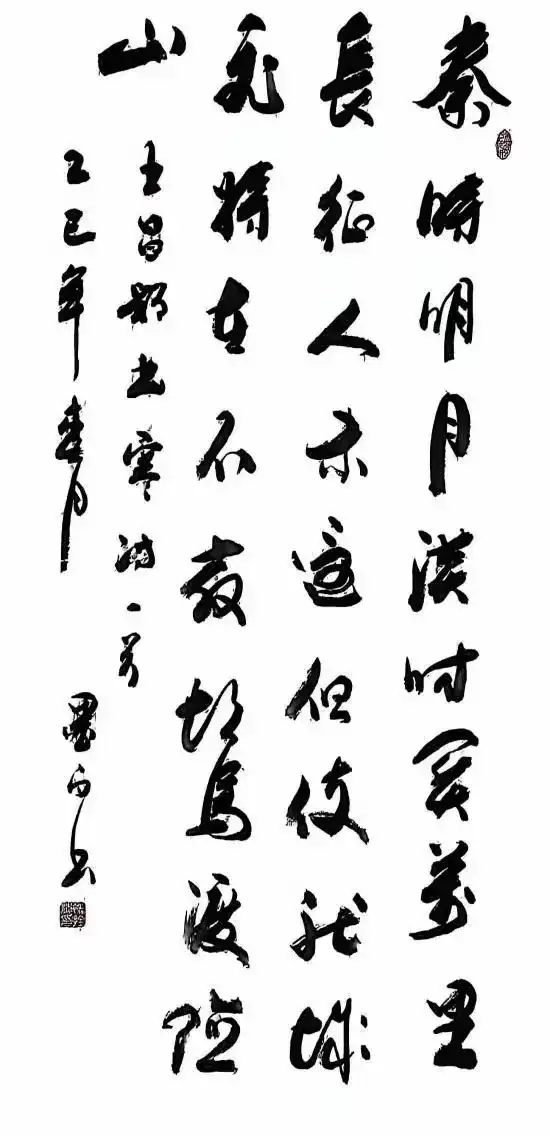 秦時明月漢时関萬里
長征人未還但使龍城
飛將在不教胡馬渡陰
山
王昌龄出塞诗一首
乙巳年春月
墨 书